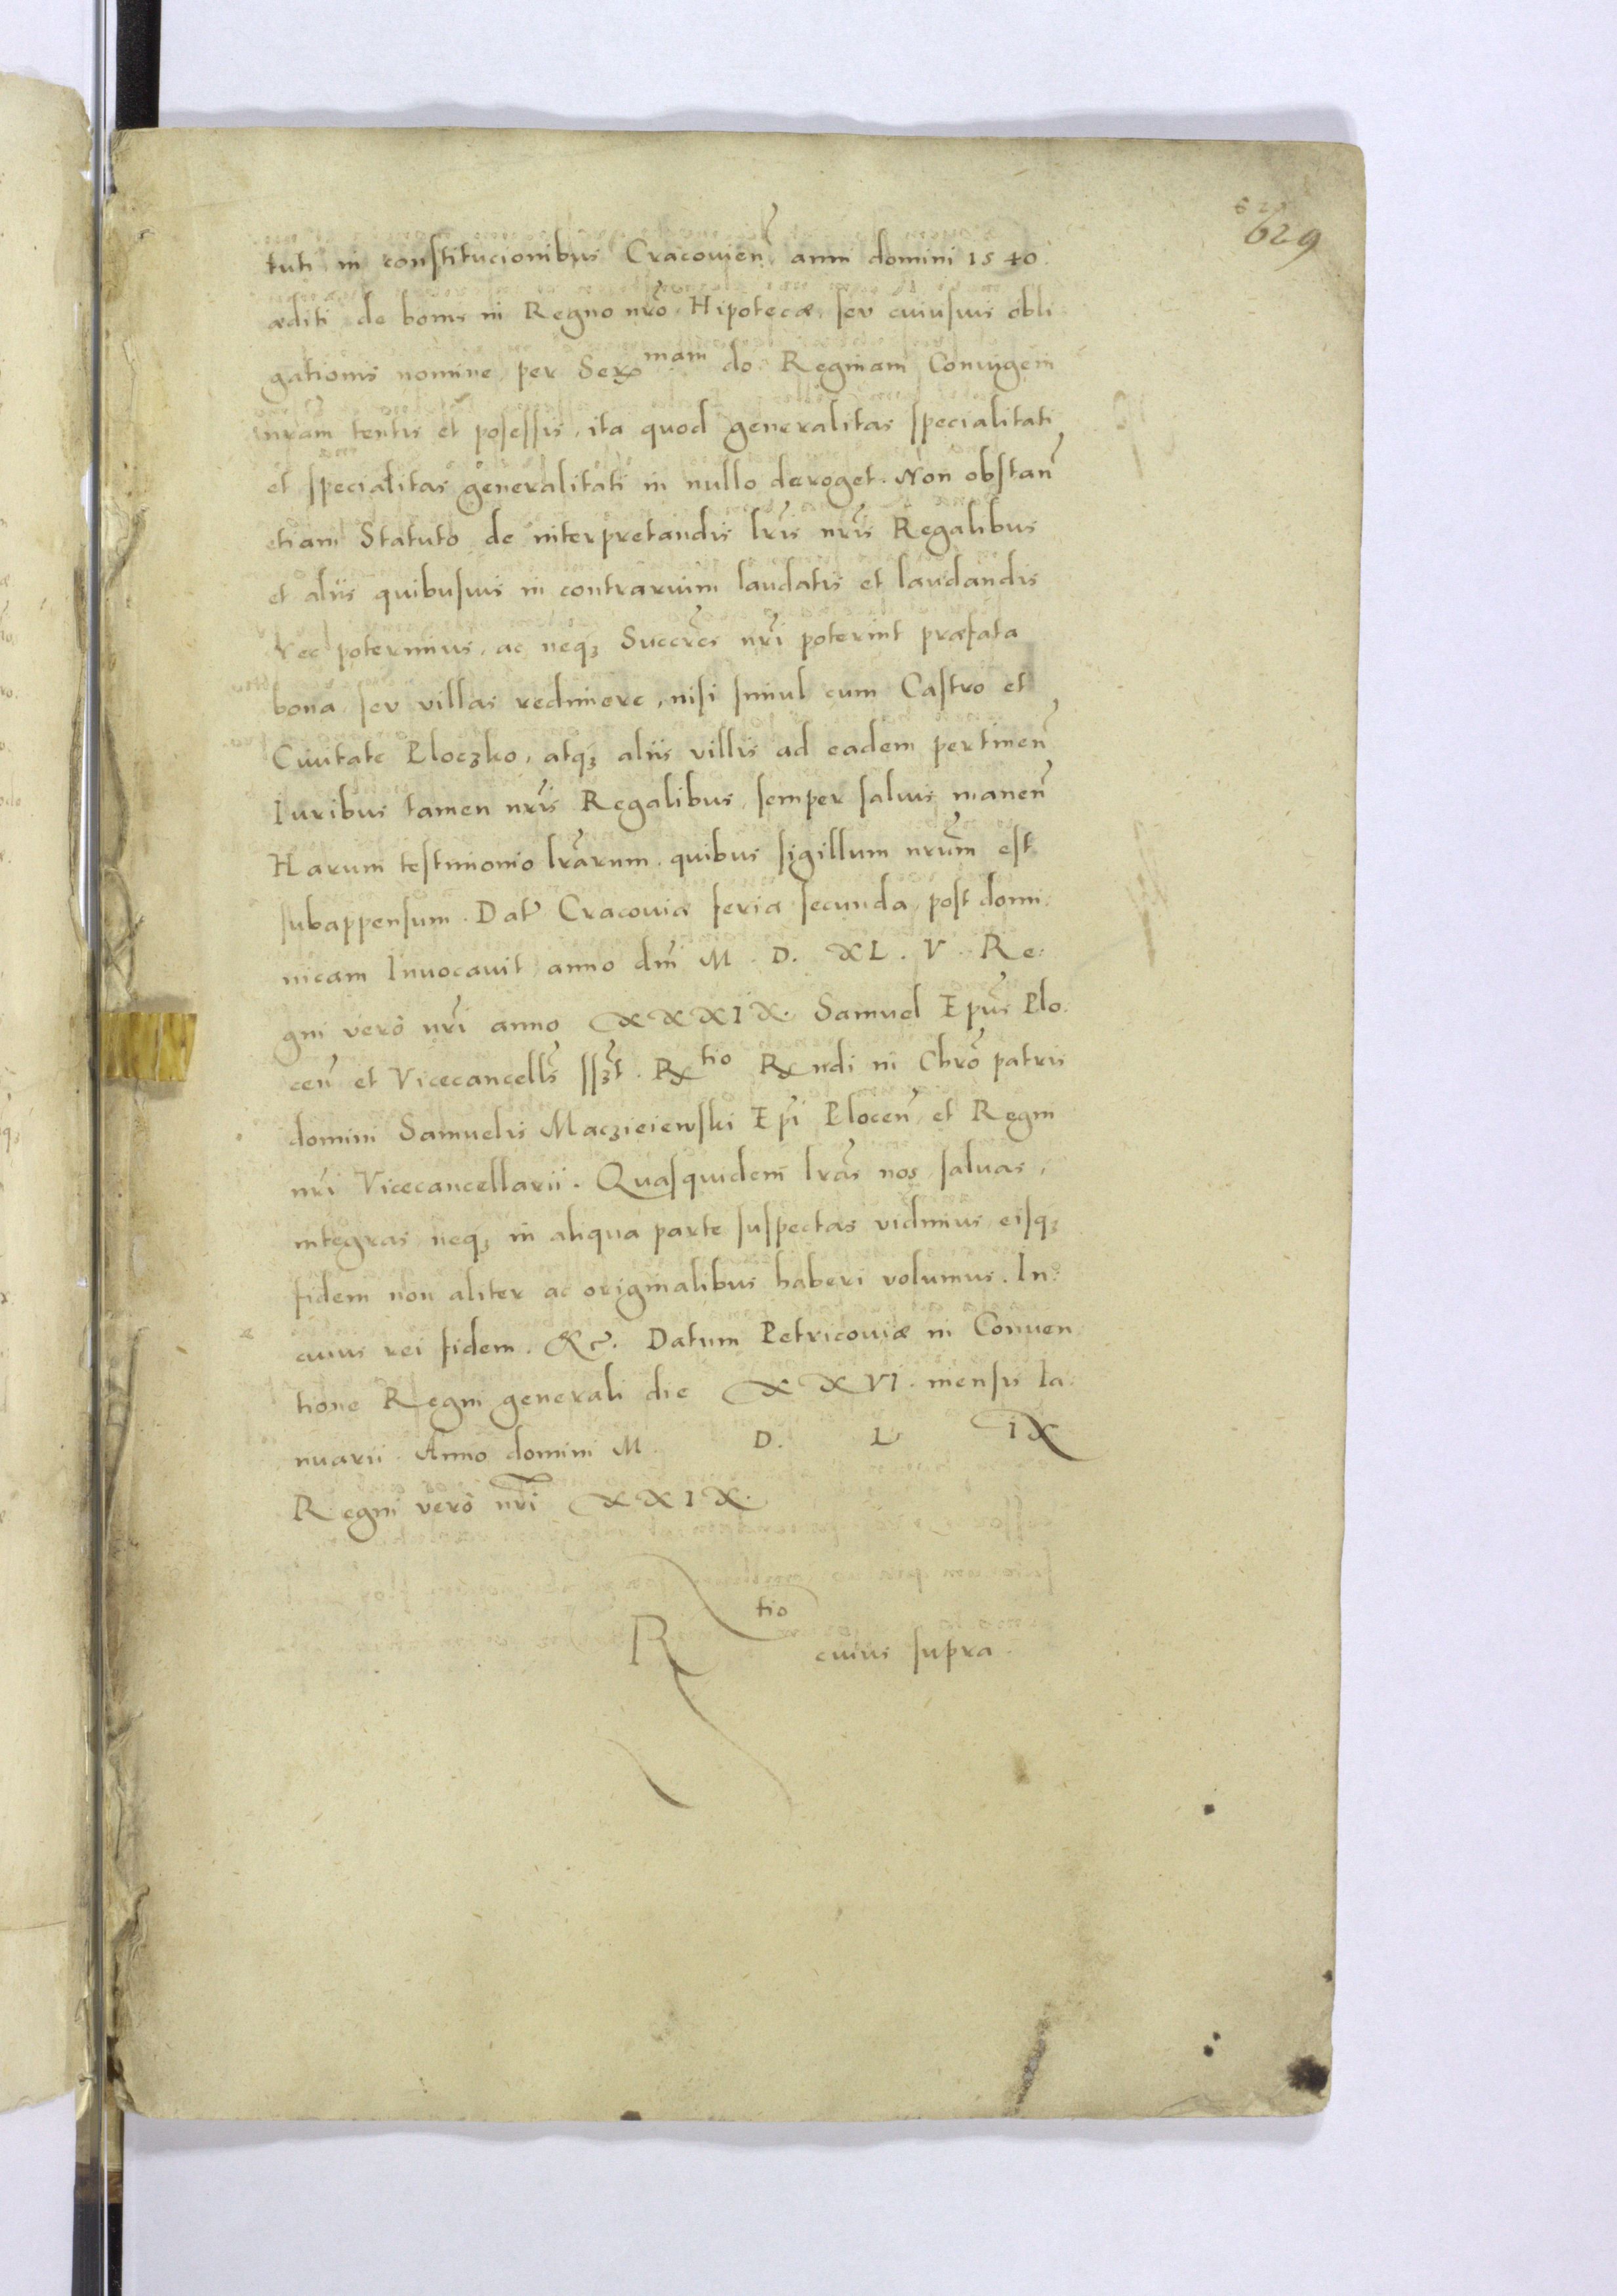 629
tuti in constitucionibus Cracovien̄ anni domini 1540.
æditi de bonis in Regno nr̄o Hipotecæ, seu cuiusvis obli
gationis nomine, per Serᵐᵃᵐ do. Reginam Coniugem
nr̄am tentis et posessis, ita quod generalitas specialitati
et specialitas generalitati in nullo deroget. Non obstan̄
etiam Statuto de interpretandis lr̄is nr̄is Regalibus
et aliis quibusvis in contrarium laudatis et laudandis
Nec poterimus, ac neq₃ Succr̄es nr̄i poterint præfata
bona seu villas redimere, nisi simul cum Castro et
Civitate Ploczko, atq₃ aliis villis ad eadem pertinen̄
Iuribus tamen nr̄is Regalibus semper salvis manen̄
Harum testimonio lr̄arum. quibus sigillum nr̄um est
subappensum. Dat̄ Cracoviæ feria secunda post domi:
nicam Invocavit anno dn̄i M. D. XL. V. Re:
gni verò nr̄i anno XXXIX. Samuel Ep̄us Plo.
cen̄ et Vicecancells̄ ssz̄t. Rᵗⁱᵒ Rndi in Chr̄o patris
domini Samuelis Maczieiewski Ep̄i Plocen̄ et Regni
nr̄i Vicecancellarii. Quasquidem lr̄as nos salvas,
integras neq₃ in aliqua parte suspectas vidimus eisq₃
fidem non aliter ac originalibus haberi volumus. In:
cuius rei fidem. &c. Datum Petricoviæ in Conven
tione Regni generali die XXVI. mensis Ia:
nuarii. Anno domini M. D. L IX
Regni verò nr̄i XXIX.
Rᵗⁱᵒ cuius supra.